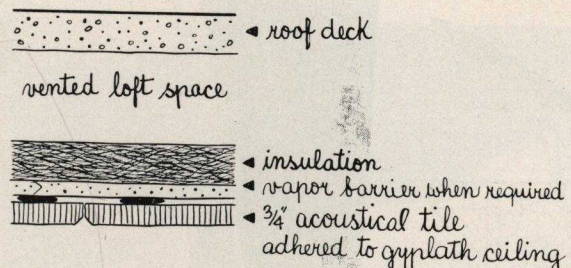 roof deck
vented loft space
insulation
vapor barrier when required
3/4" acoustical tile
adhered to gyplath ceiling